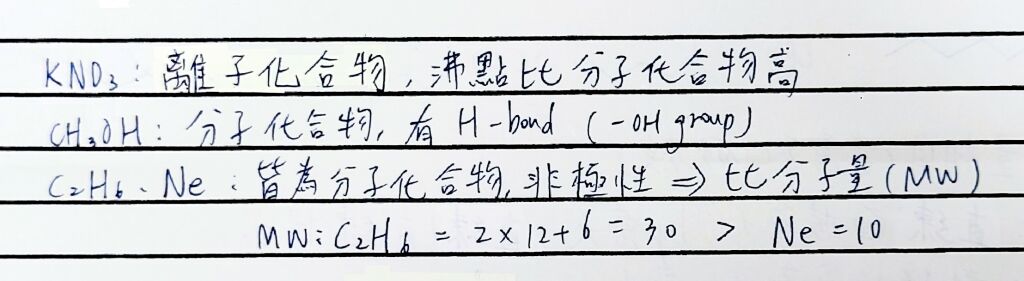 KNO₃：離子化合物，沸點比分子化合物高
CH₃OH：分子化合物，有 H-bond (-OH group)
C₂H₆、Ne：皆為分子化合物，非極性 ⇒ 比分子量(MW)
MW：C₂H₆ = 2×12+6 = 30 > Ne = 10